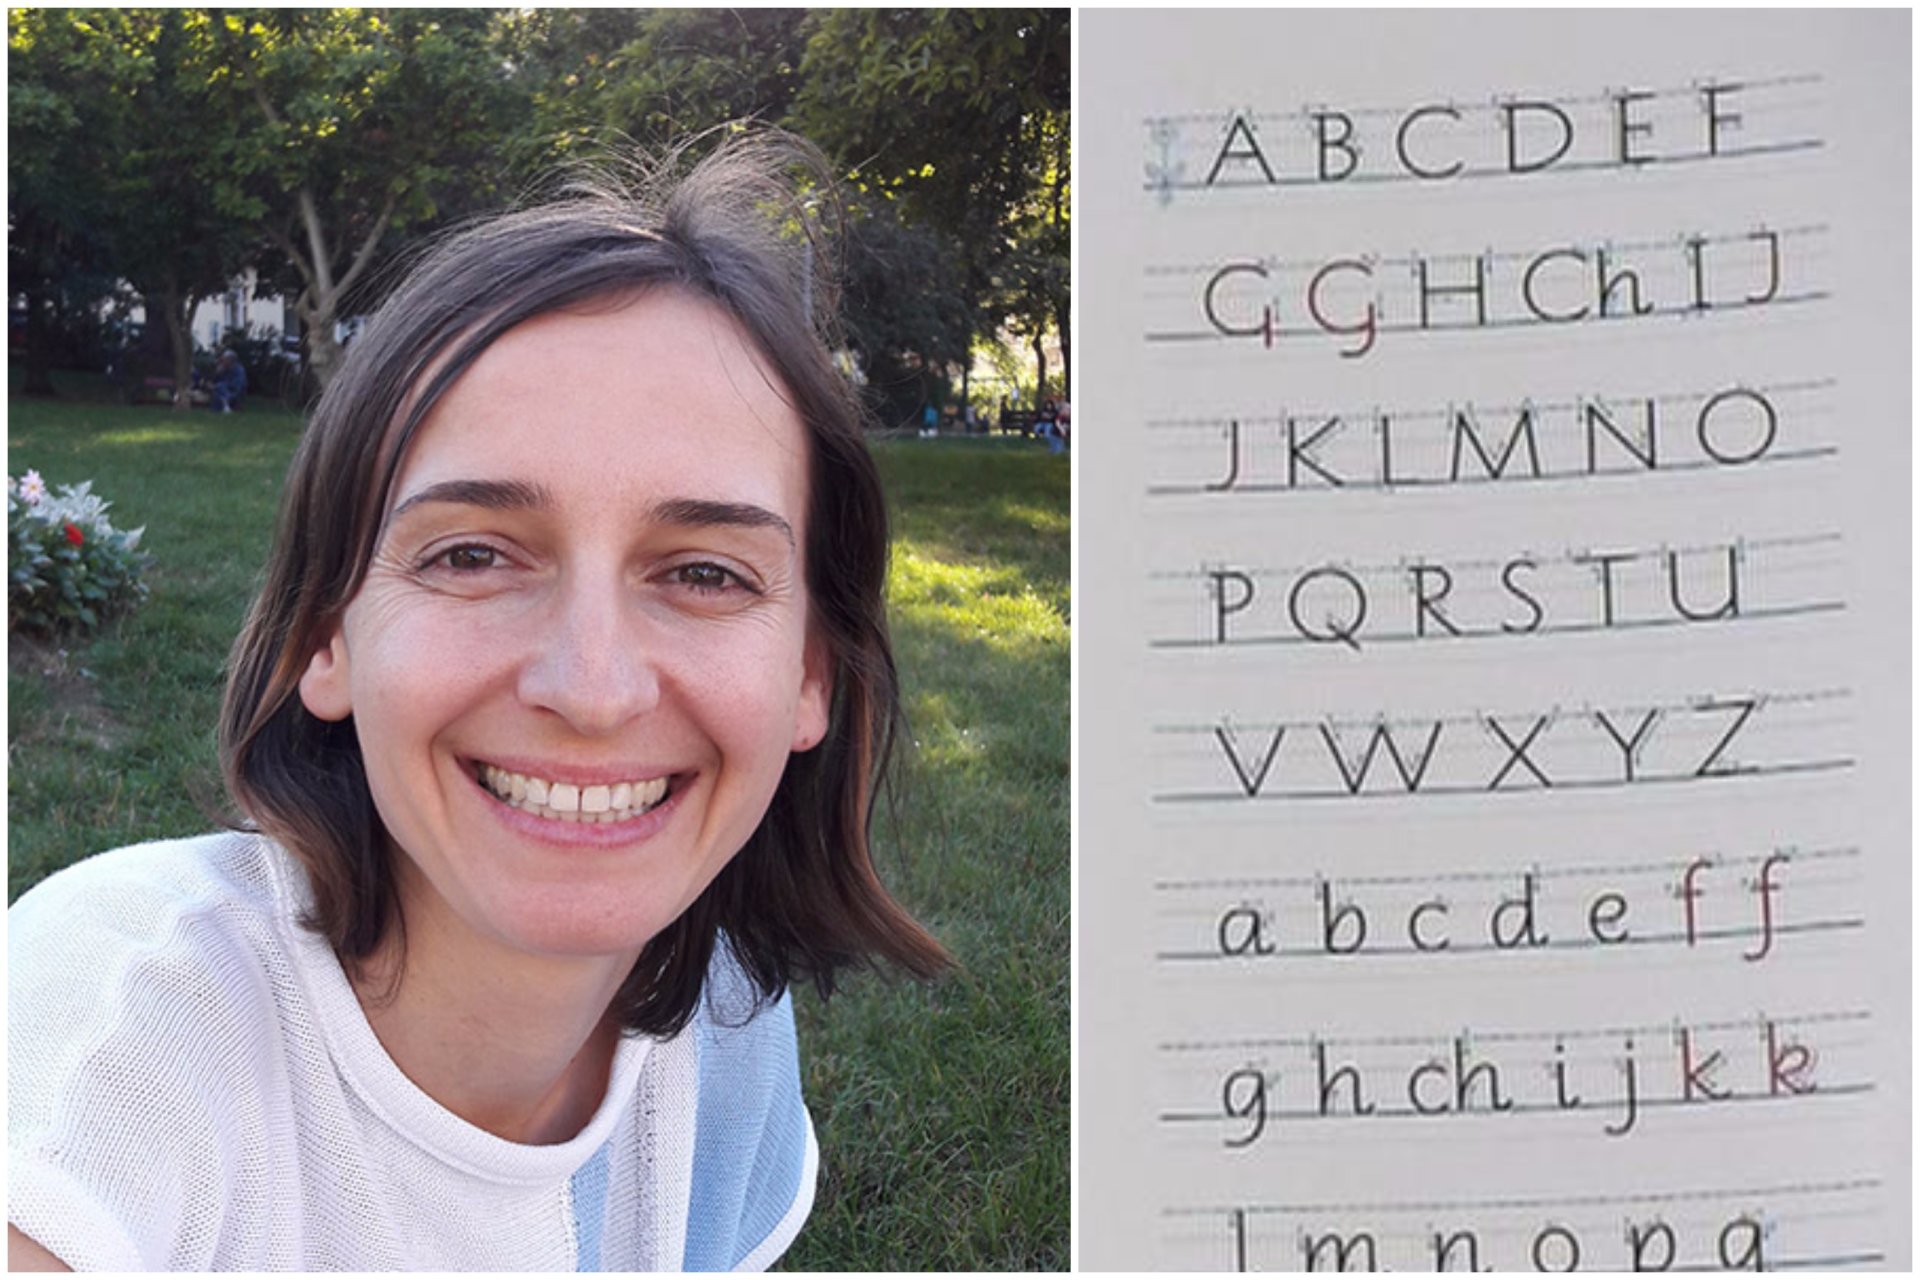 A B C D E F
G G H Ch I J
J K L M N O
P Q R S T U
V W X Y Z
a b c d e f f
g h ch i j k k
l m n o p q